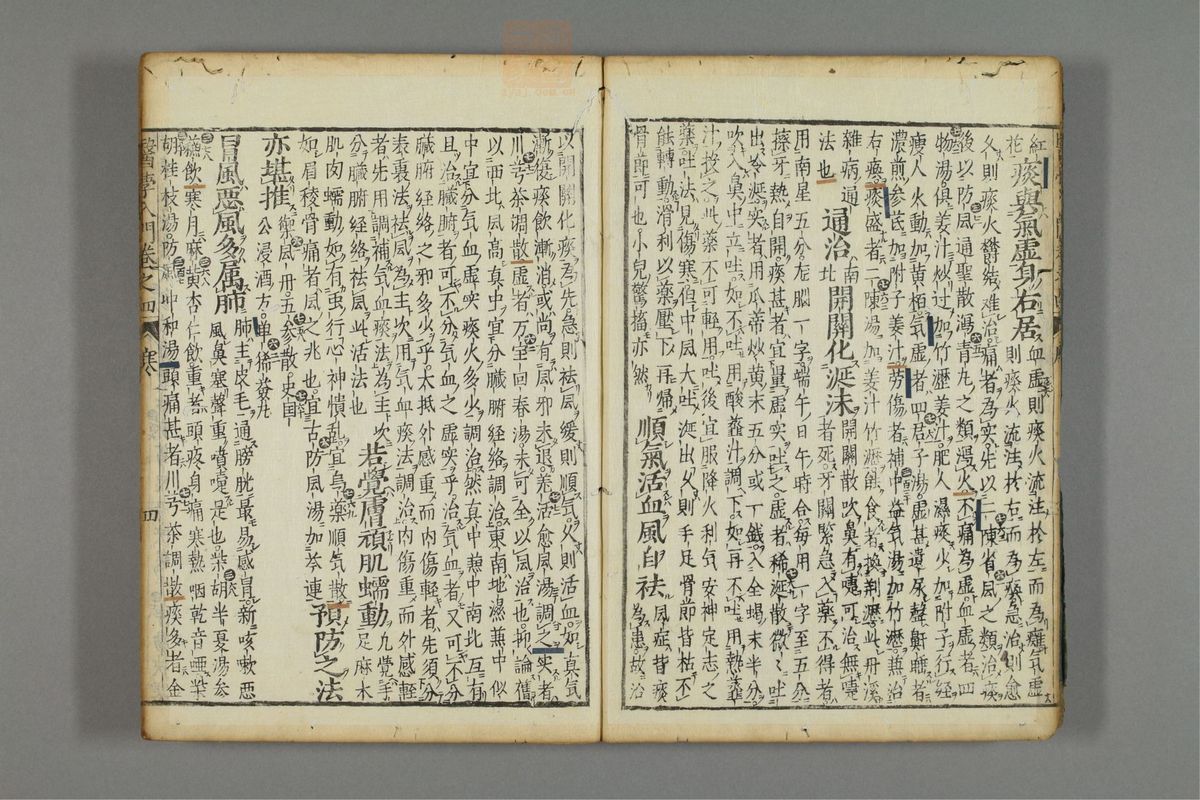 紅花痰與氣虛身右居血虛則痰火流注於左而為癱氣虛則痰火流注於右而為瘓急治則愈
久則痰火欝結難治痛者為實先以二陳省風之類治痰
後以防風通聖散瀉青丸之類瀉火不痛為虛血虛者四
物湯俱姜汁炒過加竹瀝姜汁肥人濕痰火加附子行經
瘦人火動加黃栢氣虛者四君子湯虛甚遺尿聲鼾者
濃煎參芪加附子姜汁勞傷者補中益氣湯加竹瀝兼治
右瘓痰盛者二陳湯加姜汁竹瀝能食者換荊瀝此丹溪
雜病通
法也通治南北開關化涎沫開關散吹鼻有嚏可治無嚏者死牙關緊急入藥不得者
用南星五分龍腦一字端午日午時合每用一字至五分
擦牙熱自開痰甚者宜量虛實吐之虛者稀涎散微微吐
出冷涎實者用瓜蒂炒黃末五分或一錢入全蝎末半分
吹入鼻中立吐如不吐用酸虀汁調下如再不吐用熱虀
汁投之此藥不可輕用吐後宜服降火利氣安神定志之
藥吐法見傷寒但中風大吐涎出久則手足骨節皆枯不
能轉動滑利以藥壓下再歸
骨節可也小兒驚搐亦然順氣活血風即祛風症皆痰為患故治
以開關化痰為先急則祛風緩則順氣久則活血如真氣
漸復痰飲漸消或尚有風邪未退羌活愈風湯調之實者
川芎茶調散虛者万宝回春湯未可全以風治也抑論舊
以西北風高真中宜分臟腑經絡調治東南地濕兼中似
中宜分氣血虛實痰火多少調治然真中兼中南北互有
且治臟腑者可不分氣血之虛實乎治氣血者又可不分
臟腑經絡之邪多少乎太抵外感重而內傷輕者先須分
表裏法祛風為主次用氣血痰法調治內傷重而外感輕
者先用調補氣血痰法為主次
分臟腑經絡祛風此活法也若覺膚頑肌蠕動凡覺手足麻木
肌肉蠕動如有虫行心神憒乱宜烏藥順氣散
如眉稜骨痛者風之兆也宜古防風湯加芩連預防之法
亦堪推禦風丹五參散史國公浸酒方单豨薟丸
冒風惡風多属肺肺主皮毛通膀胱最易感冒新咳嗽惡風鼻塞聲重噴嚏是也柴胡半夏湯參
蘇飲寒月麻黃杏仁飲重者頭疼身痛寒熱咽乾音啞柴
胡桂枝湯防風冲和湯頭痛甚者川芎茶調散痰多者金
醫學入門卷之四
寒
四